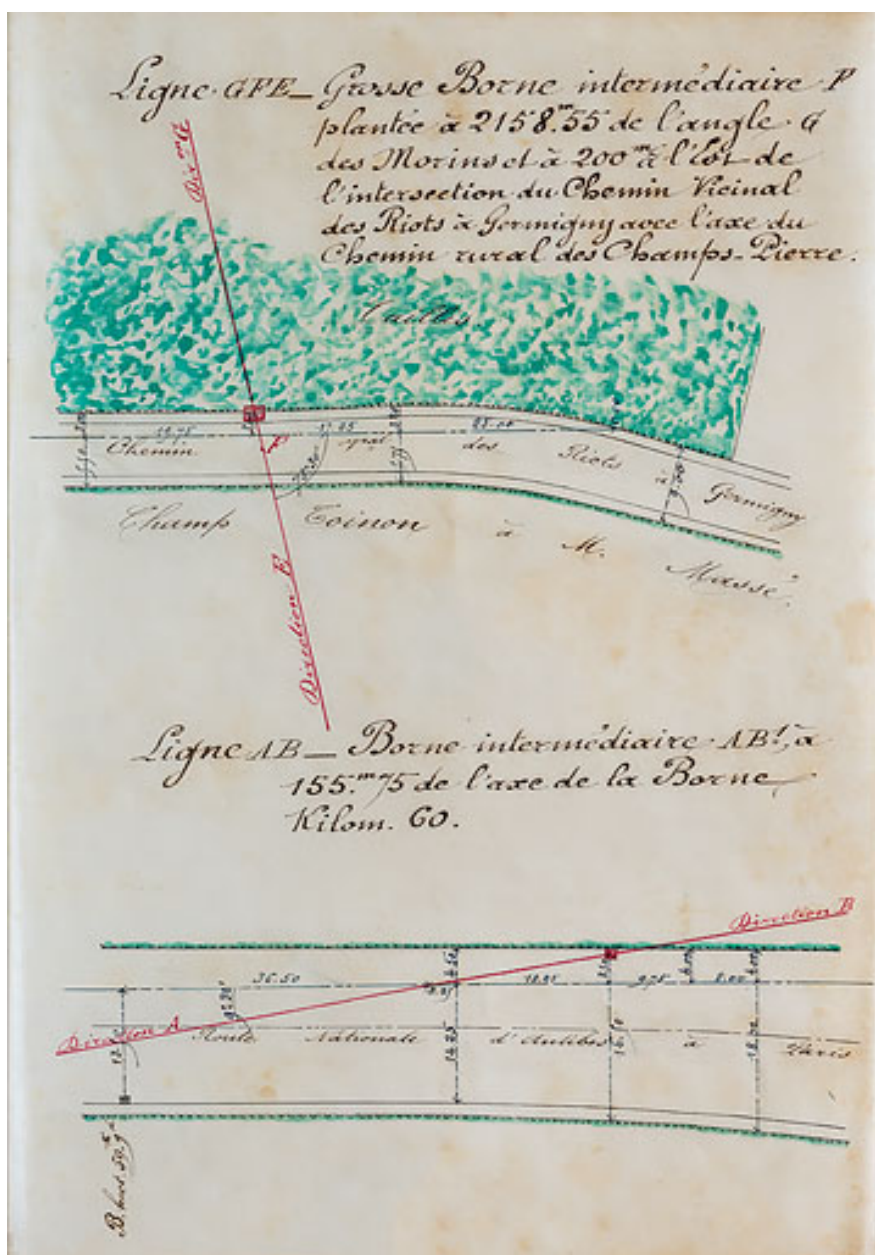 Ligne GFE_ Grosse Borne intermédiaire F
plantée à 2158.m55 de l'angle G
des Morins et à 200m à l'Est de
l'intersection du Chemin Vicinal
des Riots à Germigny avec l'axe du
Chemin rural des Champs-Pierre.
Don m G
Taillis
19.75
25.00
Chemin
des
Riots
à
Germigny
F
9.00
Champ Toinon à M. Massé.
Direction E
Ligne AB_ Borne intermédiaire AB1, à
155.m75 de l'axe de la Borne
Kilom. 60.
Direction B
36.50
9.75
8.00
Direction A
Route Nationale d'Antibes à Paris
14.25